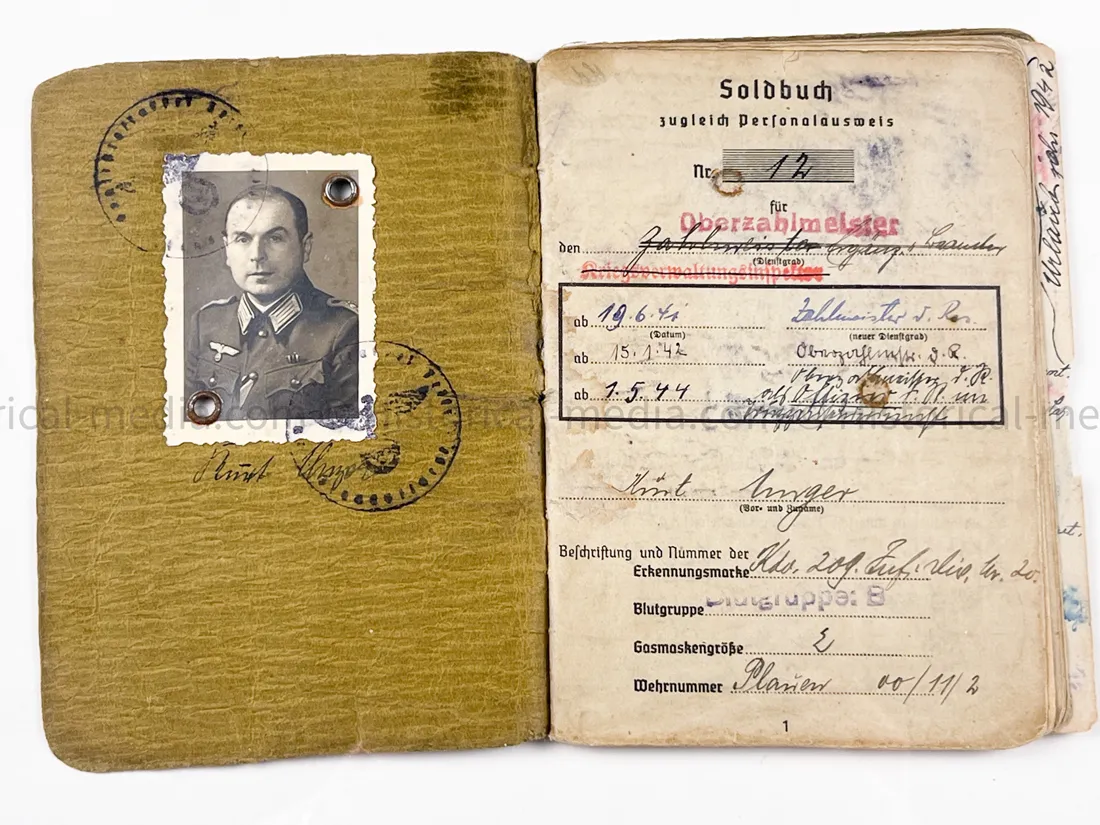 Kurt Unger
Soldbuch
zugleich Personalausweis
Nr. 12
für
Oberzahlmeister
den Zahlmeister Ergänz. Beamter
(Dienstgrad)
Kriegsverwaltungsinspektor
ab 19.6.41 Zahlmeister d. Res.
(Datum) (neuer Dienstgrad)
ab 15.1.42 Oberzahlmstr. d. R.
ab 1.5.44 Oberzahlmeister d. R.
als Offizier d. R. im
Kurt Unger
(Vor- und Zuname)
Beschriftung und Nummer der
Erkennungsmarke Kdo. 209. Inf. Div. Nr. 20.
Blutgruppe Blutgruppe: B
Gasmaskengröße 2
Wehrnummer Plauen 00/11/2
1
1942
historical-media.com